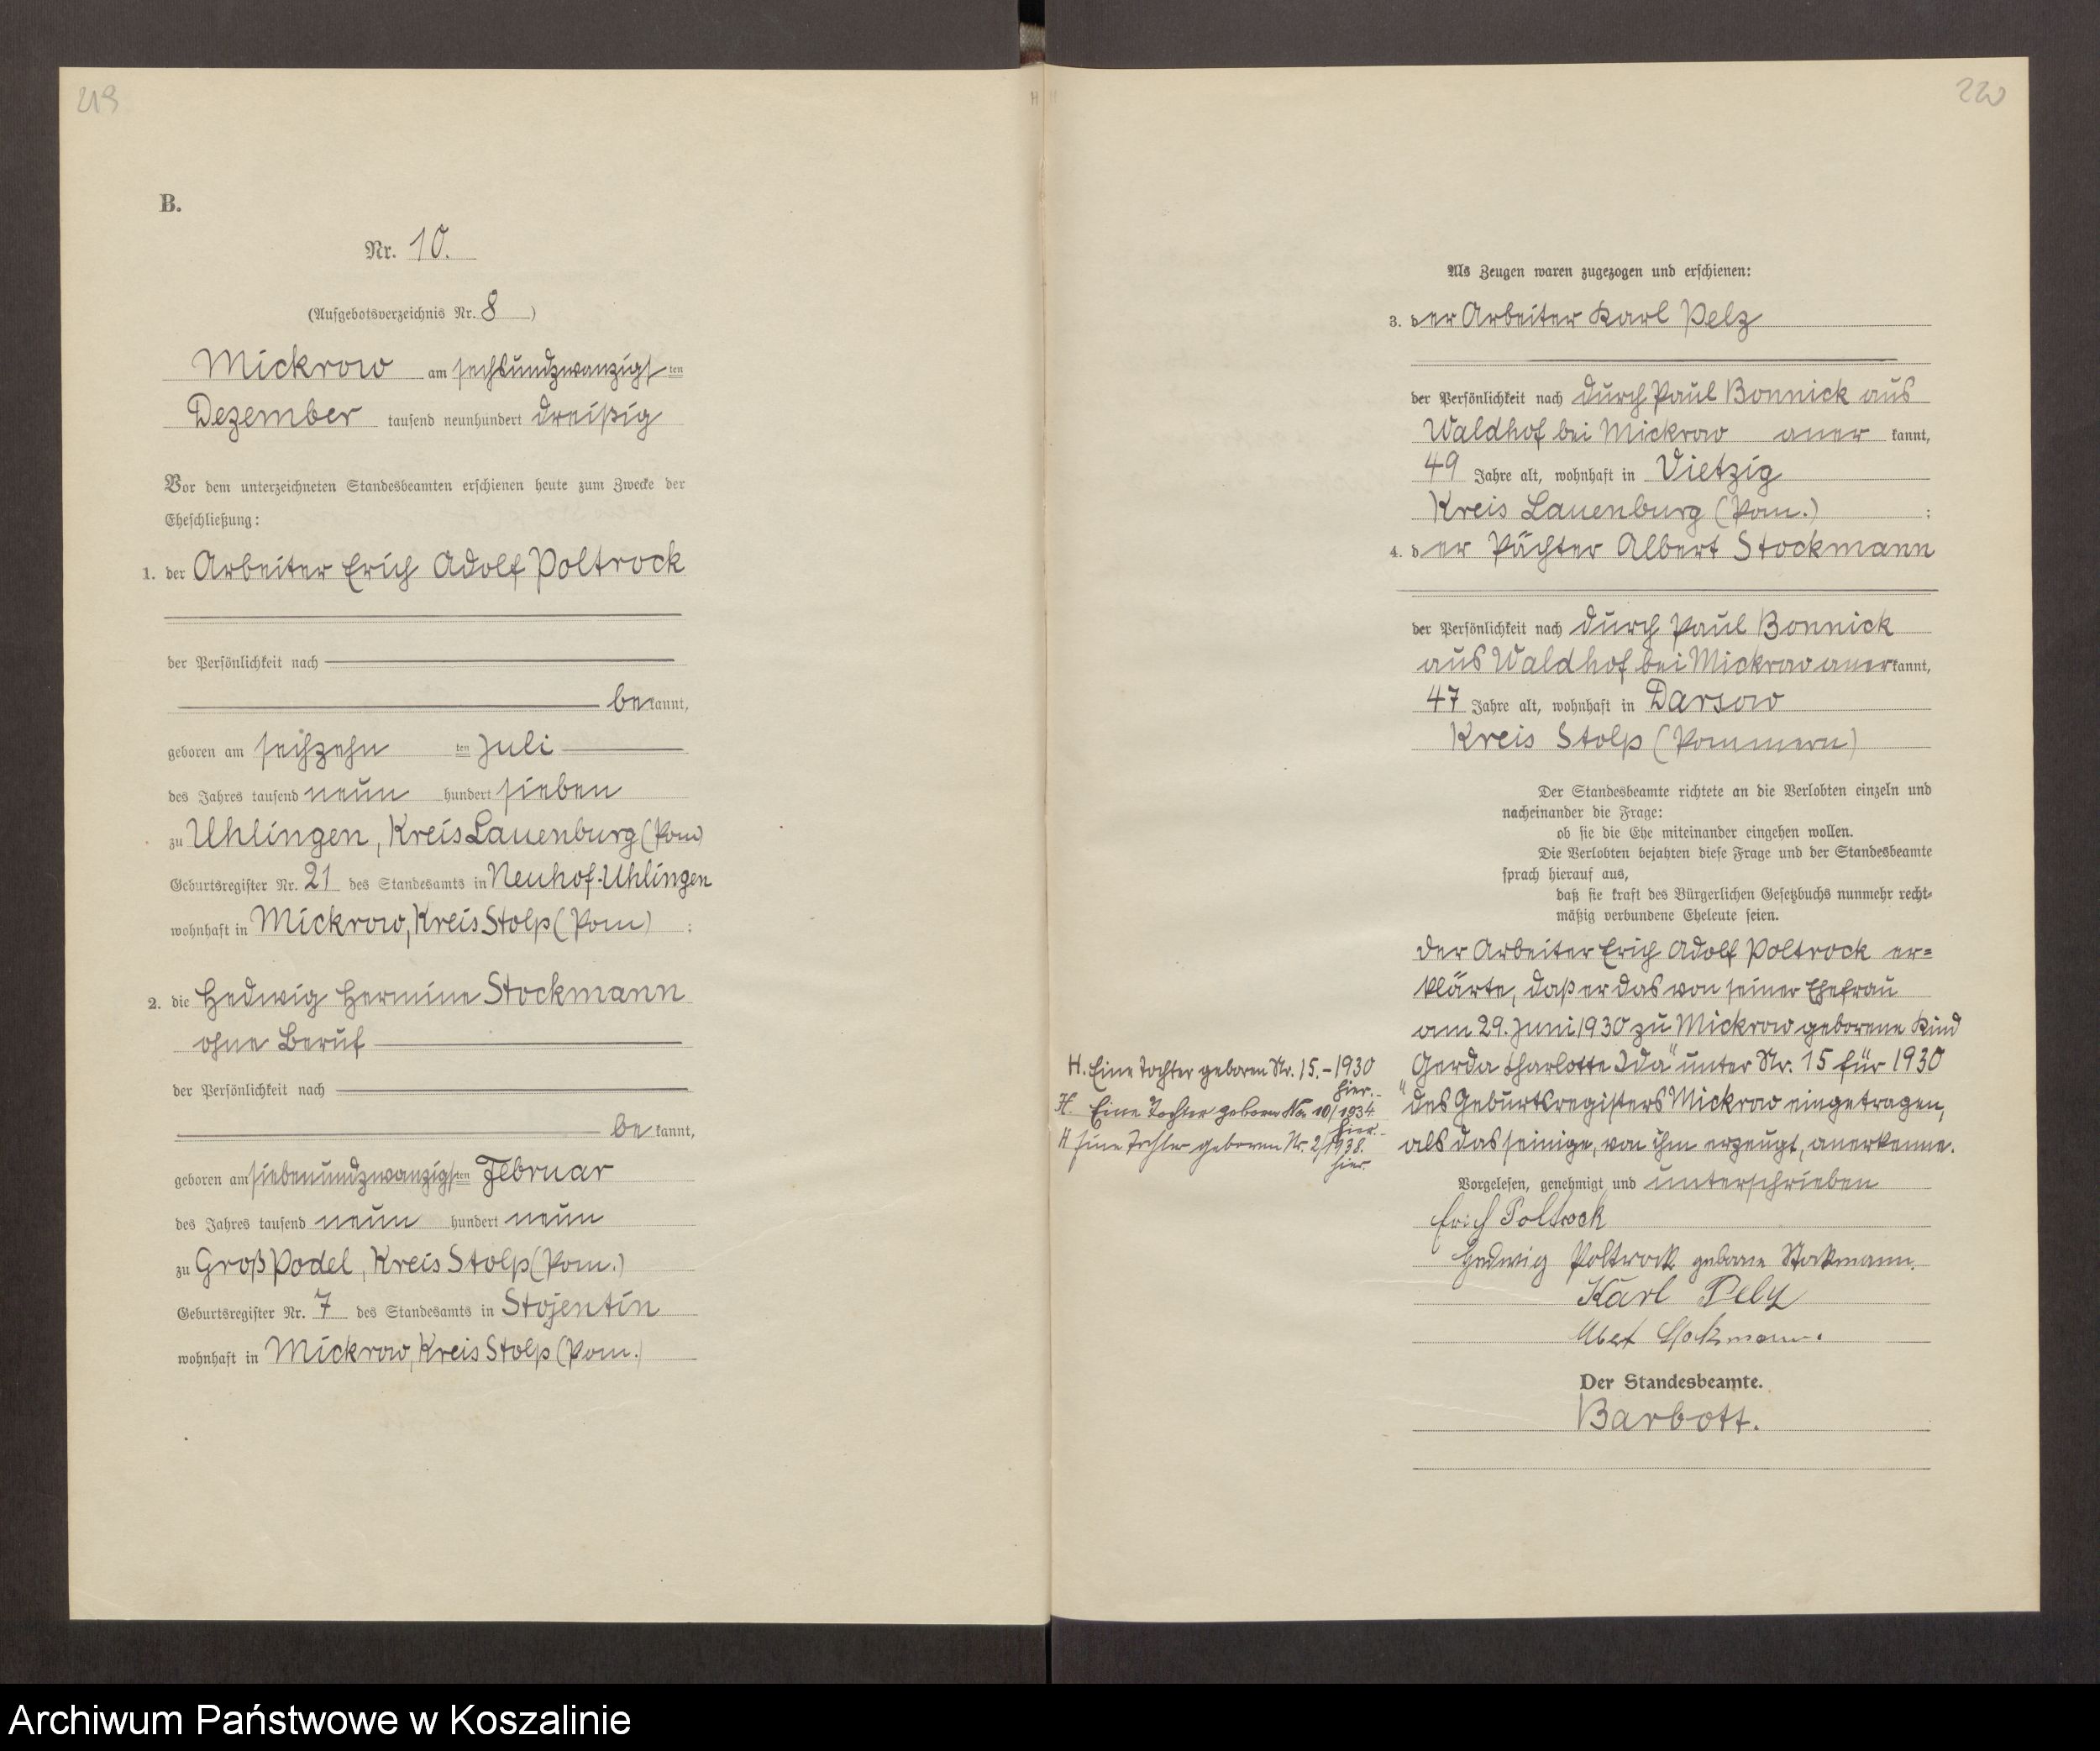 219
B.
Nr. 10.
(Aufgebotsverzeichnis Nr. 8)
Mickrow am sechsundzwanzigsten
Dezember tausend neunhundert dreißig
Vor dem unterzeichneten Standesbeamten erschienen heute zum Zwecke der
Eheschließung:
1. der Arbeiter Erich Adolf Poltrock
der Persönlichkeit nach
bekannt,
geboren am sechzehnten Juli
des Jahres tausend neun hundert sieben
zu Uhlingen, Kreis Lauenburg (Pom)
Geburtsregister Nr. 21 des Standesamts in Neuhof-Uhlingen
wohnhaft in Mickrow, Kreis Stolp (Pom) ;
2. die Hedwig Hermine Stockmann
ohne Beruf
der Persönlichkeit nach
bekannt,
geboren am siebenundzwanzigsten Februar
des Jahres tausend neun hundert neun
zu Groß Podel, Kreis Stolp (Pom.)
Geburtsregister Nr. 7 des Standesamts in Stojentin
wohnhaft in Mickrow, Kreis Stolp (Pom.)
220
Als Zeugen waren zugezogen und erschienen:
3. der Arbeiter Karl Pelz
der Persönlichkeit nach durch Paul Bonnick aus
Waldhof bei Mickrow anerkannt,
49 Jahre alt, wohnhaft in Vietzig
Kreis Lauenburg (Pom.) ;
4. der Pächter Albert Stockmann
der Persönlichkeit nach durch Paul Bonnick
aus Waldhof bei Mickrow anerkannt,
47 Jahre alt, wohnhaft in Darsow
Kreis Stolp (Pommern)
Der Standesbeamte richtete an die Verlobten einzeln und
nacheinander die Frage:
ob sie die Ehe miteinander eingehen wollen.
Die Verlobten bejahten diese Frage und der Standesbeamte
sprach hierauf aus,
daß sie kraft des Bürgerlichen Gesetzbuchs nunmehr recht-
mäßig verbundene Eheleute seien.
Der Arbeiter Erich Adolf Poltrock er=
klärte, daß er das von seiner Ehefrau
am 29. Juni 1930 zu Mickrow geborene Kind
„Gerda Charlotte Ida" unter Nr. 15 für 1930
des Geburtsregisters Mickrow eingetragen,
als das seinige, von ihm erzeugt, anerkenne.
H. Eine Tochter geboren Nr. 15.-1930
hier.-
H. Eine Tochter geboren No. 10/1934
hier.-
H Eine Tochter geboren Nr. 2/1938.
hier.
Vorgelesen, genehmigt und unterschrieben
Erich Poltrock
Hedwig Poltrock geborne Stockmann.
Karl Pelz
Albert Stockmann.
Der Standesbeamte.
Barbott.
Archiwum Państwowe w Koszalinie